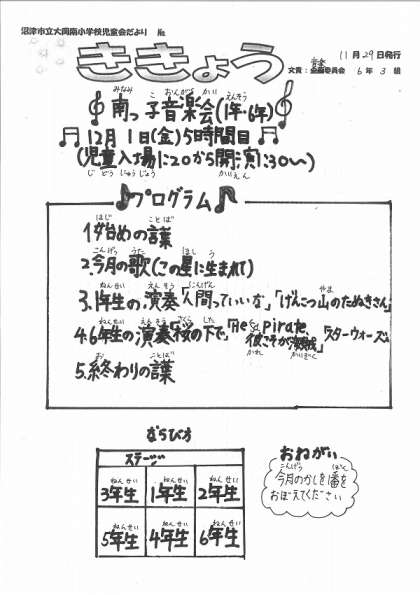 沼津市立大岡南小学校児童会だより No.
ききょう
11月29日発行
文責:音楽委員会 6年3組
南っ子音楽会(1年・6年)
12月1日(金)5時間目
(児童入場13:20から開演13:30〜)
プログラム
1.始めの言葉
2.今月の歌(この星に生まれて)
3.1年生の演奏「人間っていいな」「げんこつ山のたぬきさん」
4.6年生の演奏「桜の下で」「He's a pirate、彼こそが海賊」「スターウォーズ」
5.終わりの言葉
ならび方
ステージ
3年生 1年生 2年生
5年生 4年生 6年生
おねがい
今月のかしを1番を
おぼえてください